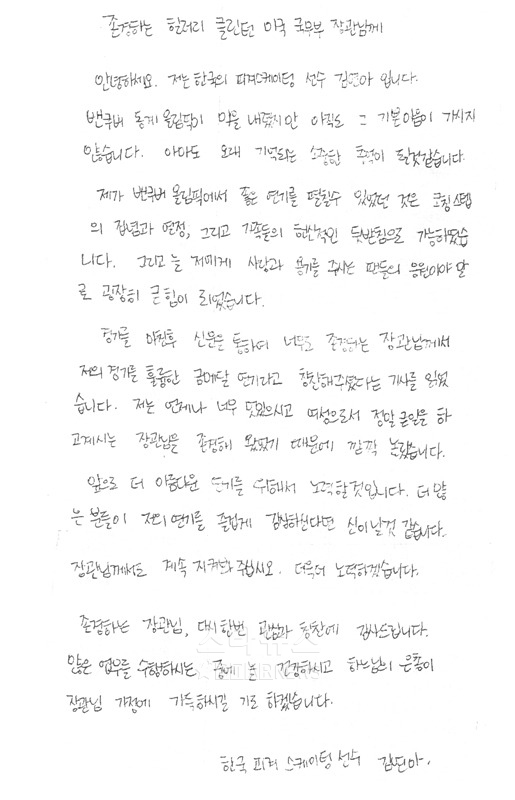 존경하는 힐러리 클린턴 미국 국무부 장관님께
안녕하세요. 저는 한국의 피겨스케이팅 선수 김연아 입니다.
밴쿠버 동계올림픽이 막을 내렸지만 아직도 그 기분이 가시지
않습니다. 아마도 오래 기억되는 소중한 추억이 될것같습니다.
제가 밴쿠버 올림픽에서 좋은 연기를 펼칠수 있었던 것은 코칭스텝
의 집념과 열정, 그리고 가족들의 헌신적인 뒷받침으로 가능하였습
니다. 그리고 늘 저에게 사랑과 용기를 주시는 팬들의 응원이야 말
로 굉장히 큰 힘이 되었습니다.
경기를 마친후 신문을 통하여 너무도 존경하는 장관님께서
저의 경기를 훌륭한 금메달 연기라고 칭찬해주셨다는 기사를 읽었
습니다. 저는 언제나 너무 멋있으시고 여성으로서 정말 큰일을 하
고계시는 장관님을 존경해 왔었기 때문에 깜짝 놀랐습니다.
앞으로 더 아름다운 연기를 위해서 노력할것입니다. 더 많
은 분들이 저의 연기를 즐겁게 감상하신다면 신이날것 같습니다.
장관님께서도 계속 지켜봐 주십시오. 더욱더 노력하겠습니다.
존경하는 장관님, 다시한번 관심과 칭찬에 감사드립니다.
많은 업무를 수행하시는 중에 늘 건강하시고 하느님의 은총이
장관님 가정에 가득하시길 기도 하겠습니다.
스타뉴스
한국 피겨 스케이팅 선수 김연아.